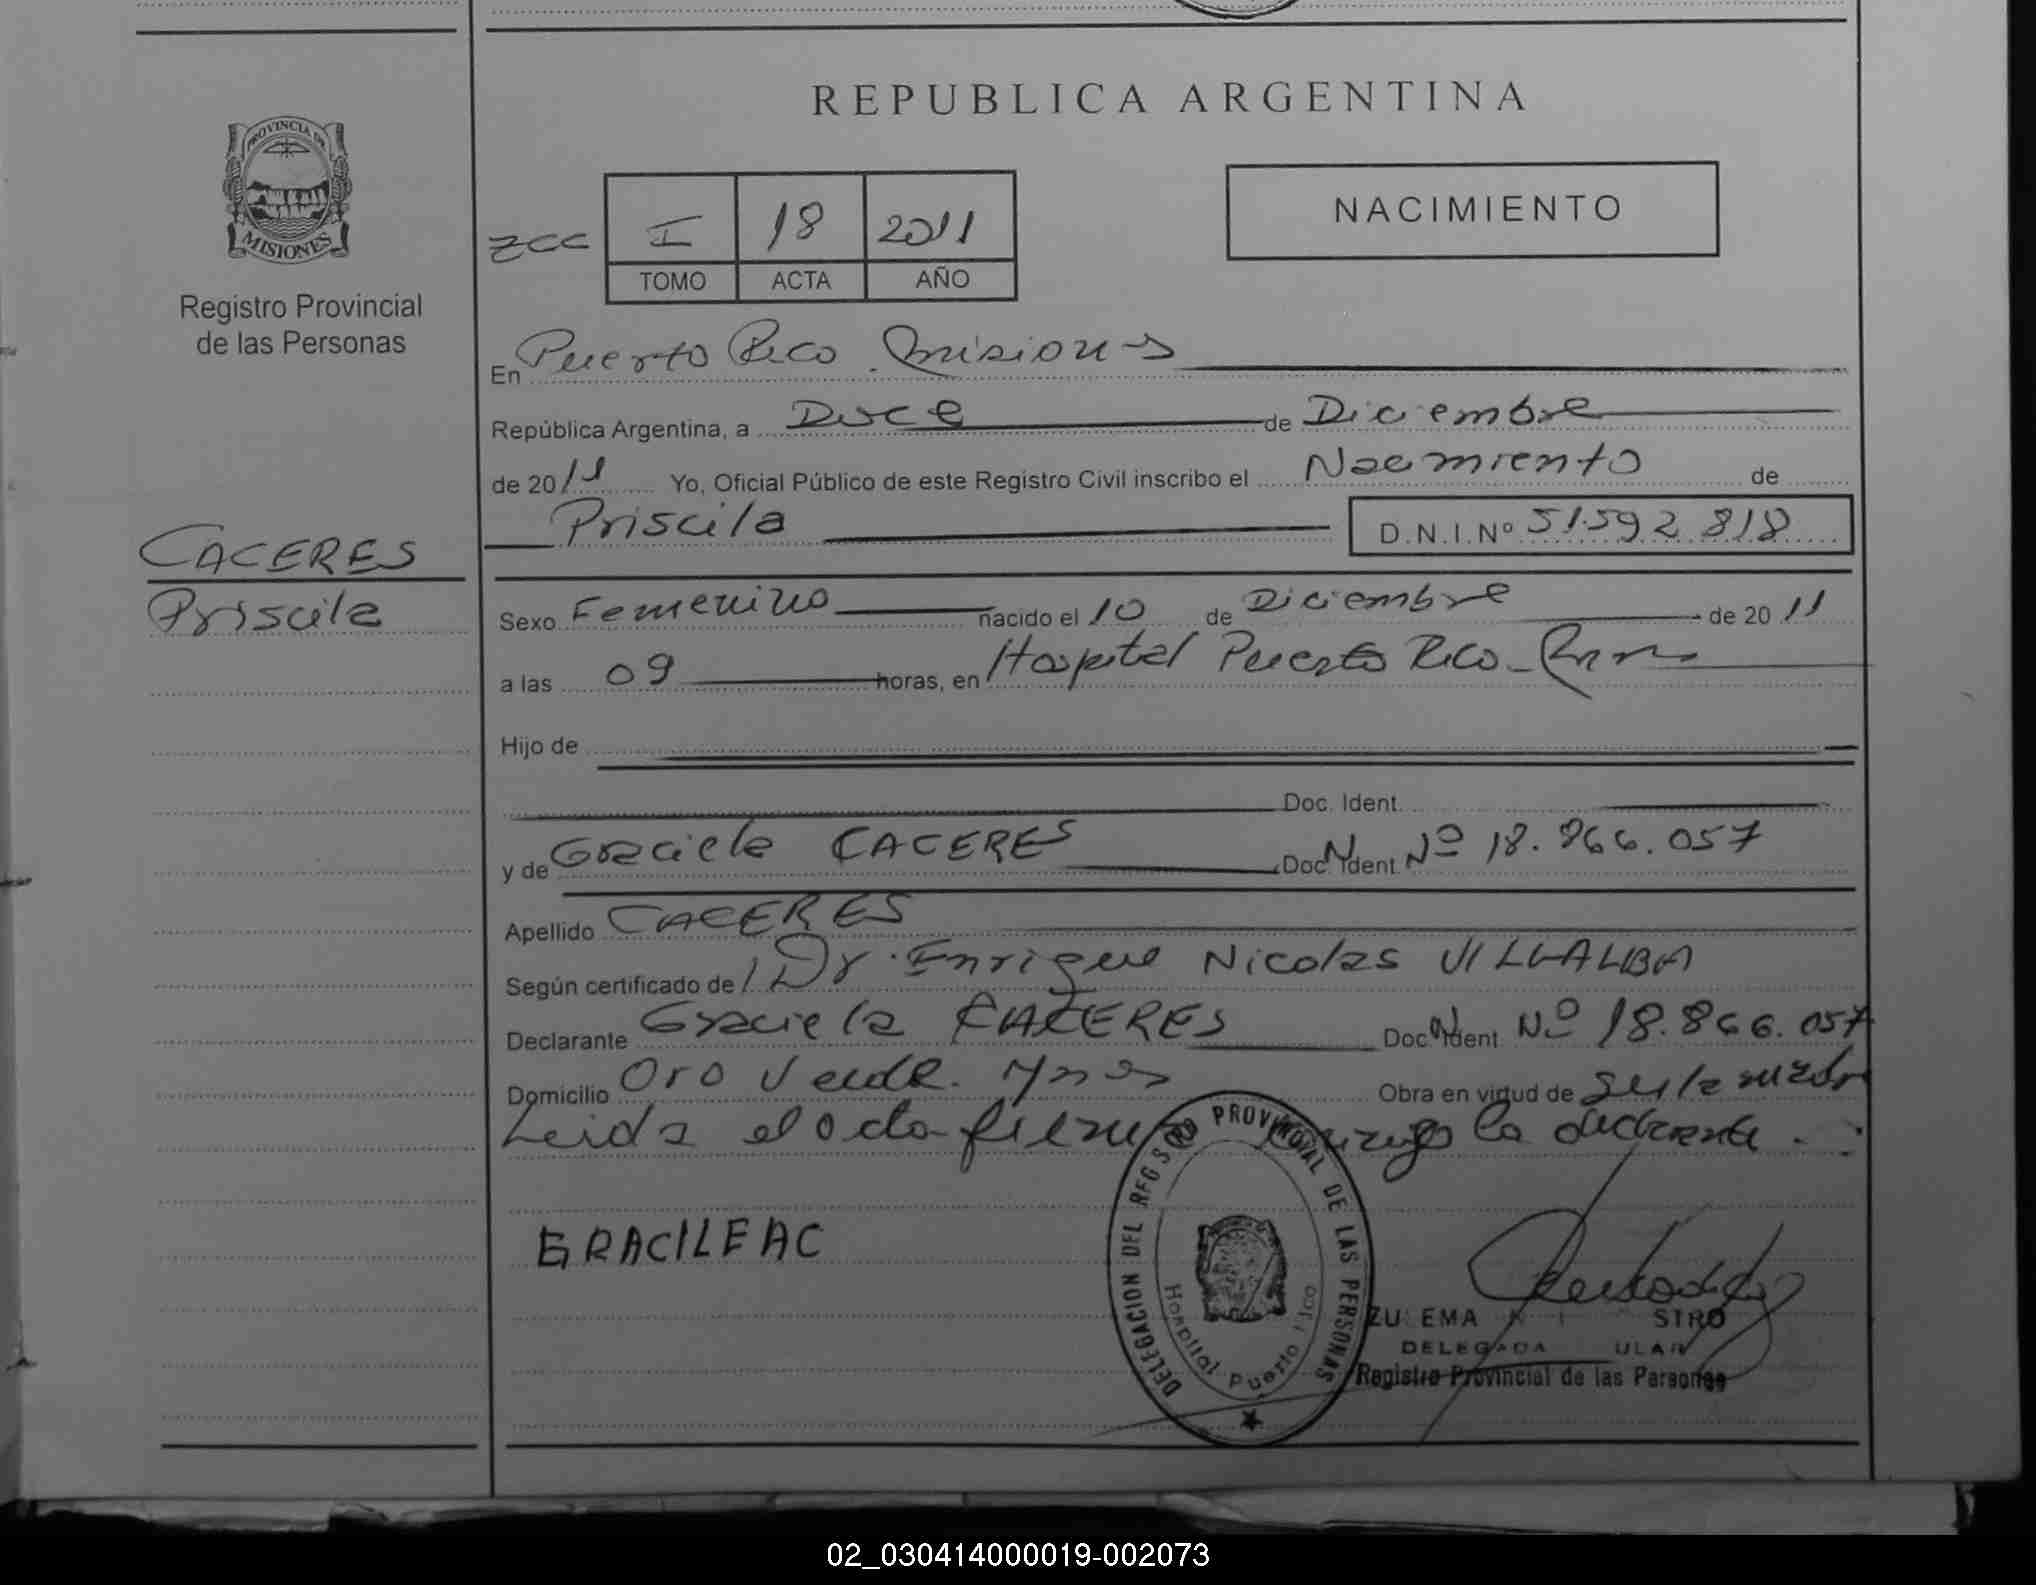 REPUBLICA ARGENTINA
PROVINCIA DE
MISIONES
Registro Provincial
de las Personas
zcc I 18 2011
TOMO ACTA AÑO
NACIMIENTO
En Puerto Rico. Misiones
República Argentina, a Doce de Diciembre
de 2011 Yo, Oficial Público de este Registro Civil inscribo el Nacimiento de
Priscila D.N.I.Nº 51.592 818
CACERES
Priscila
Sexo Femenino nacido el 10 de Diciembre de 2011
a las 09 horas, en Hospital Puerto Rico
Hijo de
Doc. Ident.
y de Graciela CACERES Doc. Ident. Nº 18.866.057
Apellido CACERES
Según certificado de Dr. Enrique Nicolas VILLALBA
Declarante Graciela CACERES Doc. Ident. Nº 18.866.057
Domicilio Oro Verde. Obra en virtud de
Leida el acta la declarante.
GRACILEAC
DELEGACION DEL REGISTRO PROVINCIAL DE LAS PERSONAS
Hospital Puerto Rico
ZULEMA STRO
DELEGADA ULAR
Registro Provincial de las Personas
02_030414000019-002073